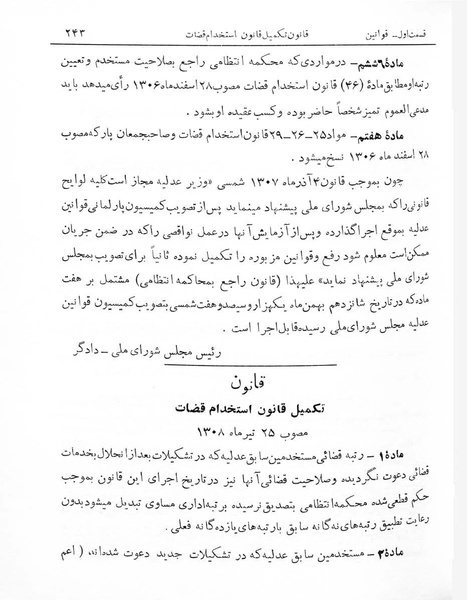 قسمت اول ـ قوانین
قانون تکمیل قانون استخدام قضات
۲۴۳
مادهٔ ششم ـ درمواردی‌که محکمه انتظامی راجع بصلاحیت مستخدم و تعیین
رتبه او مطابق مادهٔ (۴۶) قانون استخدام قضات مصوب ۲۸ اسفندماه ۱۳۰۶ رأی‌میدهد باید
مدعی‌العموم تمیز شخصاً حاضر بوده و کسب عقیده او بشود .
مادهٔ هفتم ـ مواد ۲۵ـ۲۶ـ۲۹ قانون استخدام قضات و صاحبجمعان پارکه مصوب
۲۸ اسفند ماه ۱۳۰۶ نسخ میشود .
چون بموجب قانون ۴ آذرماه ۱۳۰۷ شمسی «وزیر عدلیه مجاز است کلیه لوایح
قانونی راکه بمجلس شورای ملی پیشنهاد مینماید پس از تصویب کمیسیون پارلمانی قوانین
عدلیه بموقع اجرا گذارده و پس از آزمایش آنها در عمل نواقصی راکه در ضمن جریان
ممکن است معلوم شود رفع و قوانین مزبوره را تکمیل نموده ثانیاً برای تصویب بمجلس
شورای ملی پیشنهاد نماید» علیهذا (قانون راجع بمحاکمه انتظامی) مشتمل بر هفت
ماده که در تاریخ شانزدهم بهمن ماه یکهزار و سیصد و هفت شمسی بتصویب کمیسیون قوانین
عدلیه مجلس شورای ملی رسیده قابل اجرا است .
رئیس مجلس شورای ملی ـ دادگر
قانون
تکمیل قانون استخدام قضات
مصوب ۲۵ تیر ماه ۱۳۰۸
مادهٔ ۱ ـ رتبه قضائی مستخدمین سابق عدلیه که در تشکیلات بعد از انحلال بخدمات
قضائی دعوت نگردیده و صلاحیت قضائی آنها نیز در تاریخ اجرای این قانون بموجب
حکم قطعی شده محکمه انتظامی بتصدیق نرسیده برتبه اداری مساوی تبدیل میشود بدون
رعایت تطبیق رتبه‌های نه‌گانه سابق با رتبه‌های یازده‌گانه فعلی .
مادهٔ ۲ ـ مستخدمین سابق عدلیه که در تشکیلات جدید دعوت شده‌اند ، ( اعم